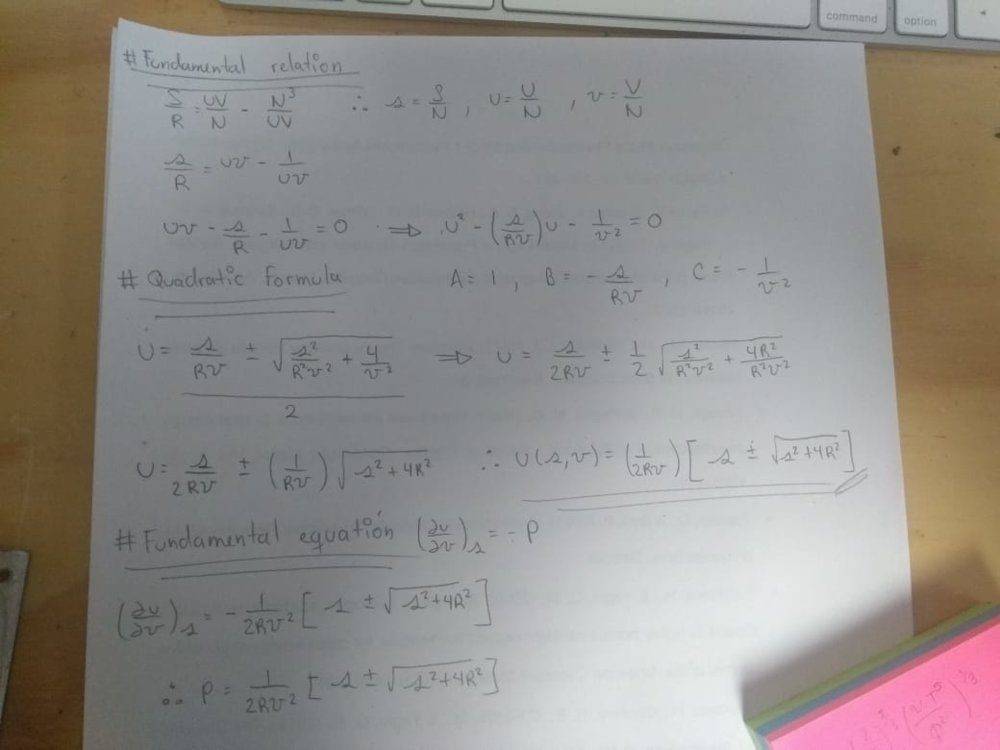 command option
# Fundamental relation
S/R = UV/N - N³/UV ∴ s = S/N , u = U/N , v = V/N
s/R = uv - 1/uv
uv - s/R - 1/uv = 0 ⇒ u² - (s/Rv)u - 1/v² = 0
# Quadratic Formula A = 1 , B = - s/Rv , C = - 1/v²
u = (s/Rv ± √(s²/R²v² + 4/v²))/2 ⇒ u = s/2Rv ± 1/2 √(s²/R²v² + 4R²/R²v²)
u = s/2Rv ± (1/Rv) √(s² + 4R²) ∴ u(s,v) = (1/2Rv) [ s ± √(s² + 4R²) ]
# Fundamental equation (∂u/∂v)s = - P
(∂u/∂v)s = - 1/2Rv² [ s ± √(s² + 4R²) ]
∴ P = 1/2Rv² [ s ± √(s² + 4R²) ]